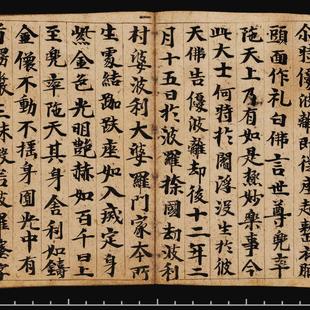 尒時優波離即從座起整衣服
頭面作礼白佛言世尊兜率
陁天上乃有如是極妙樂事今
此大士何時於閻浮沒生於彼
天佛告優波離却後十二年二
月十五日於波羅捺國劫波利
村婆婆利大婆羅門家本所
生處結跏趺座如入滅定身
紫金色光明艶赫如百千日上
至兜率陁天其身舍利如鑄
金像不動不揺身圓光中有
首楞嚴三昧般若波羅蜜字